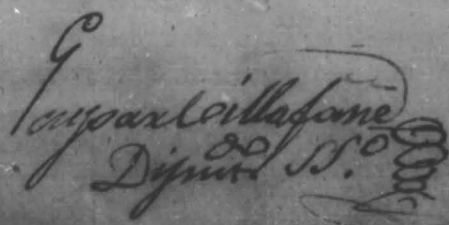 Gaspar Villafañe
Diput.do SS.o